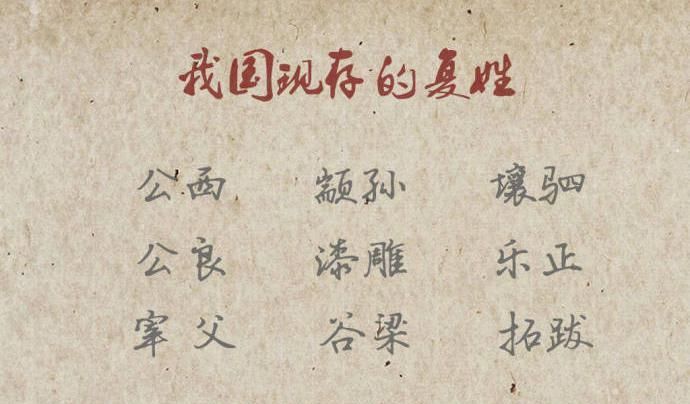 我国现存的复姓
公西 颛孙 壤驷
公良 漆雕 乐正
宰父 谷梁 拓跋